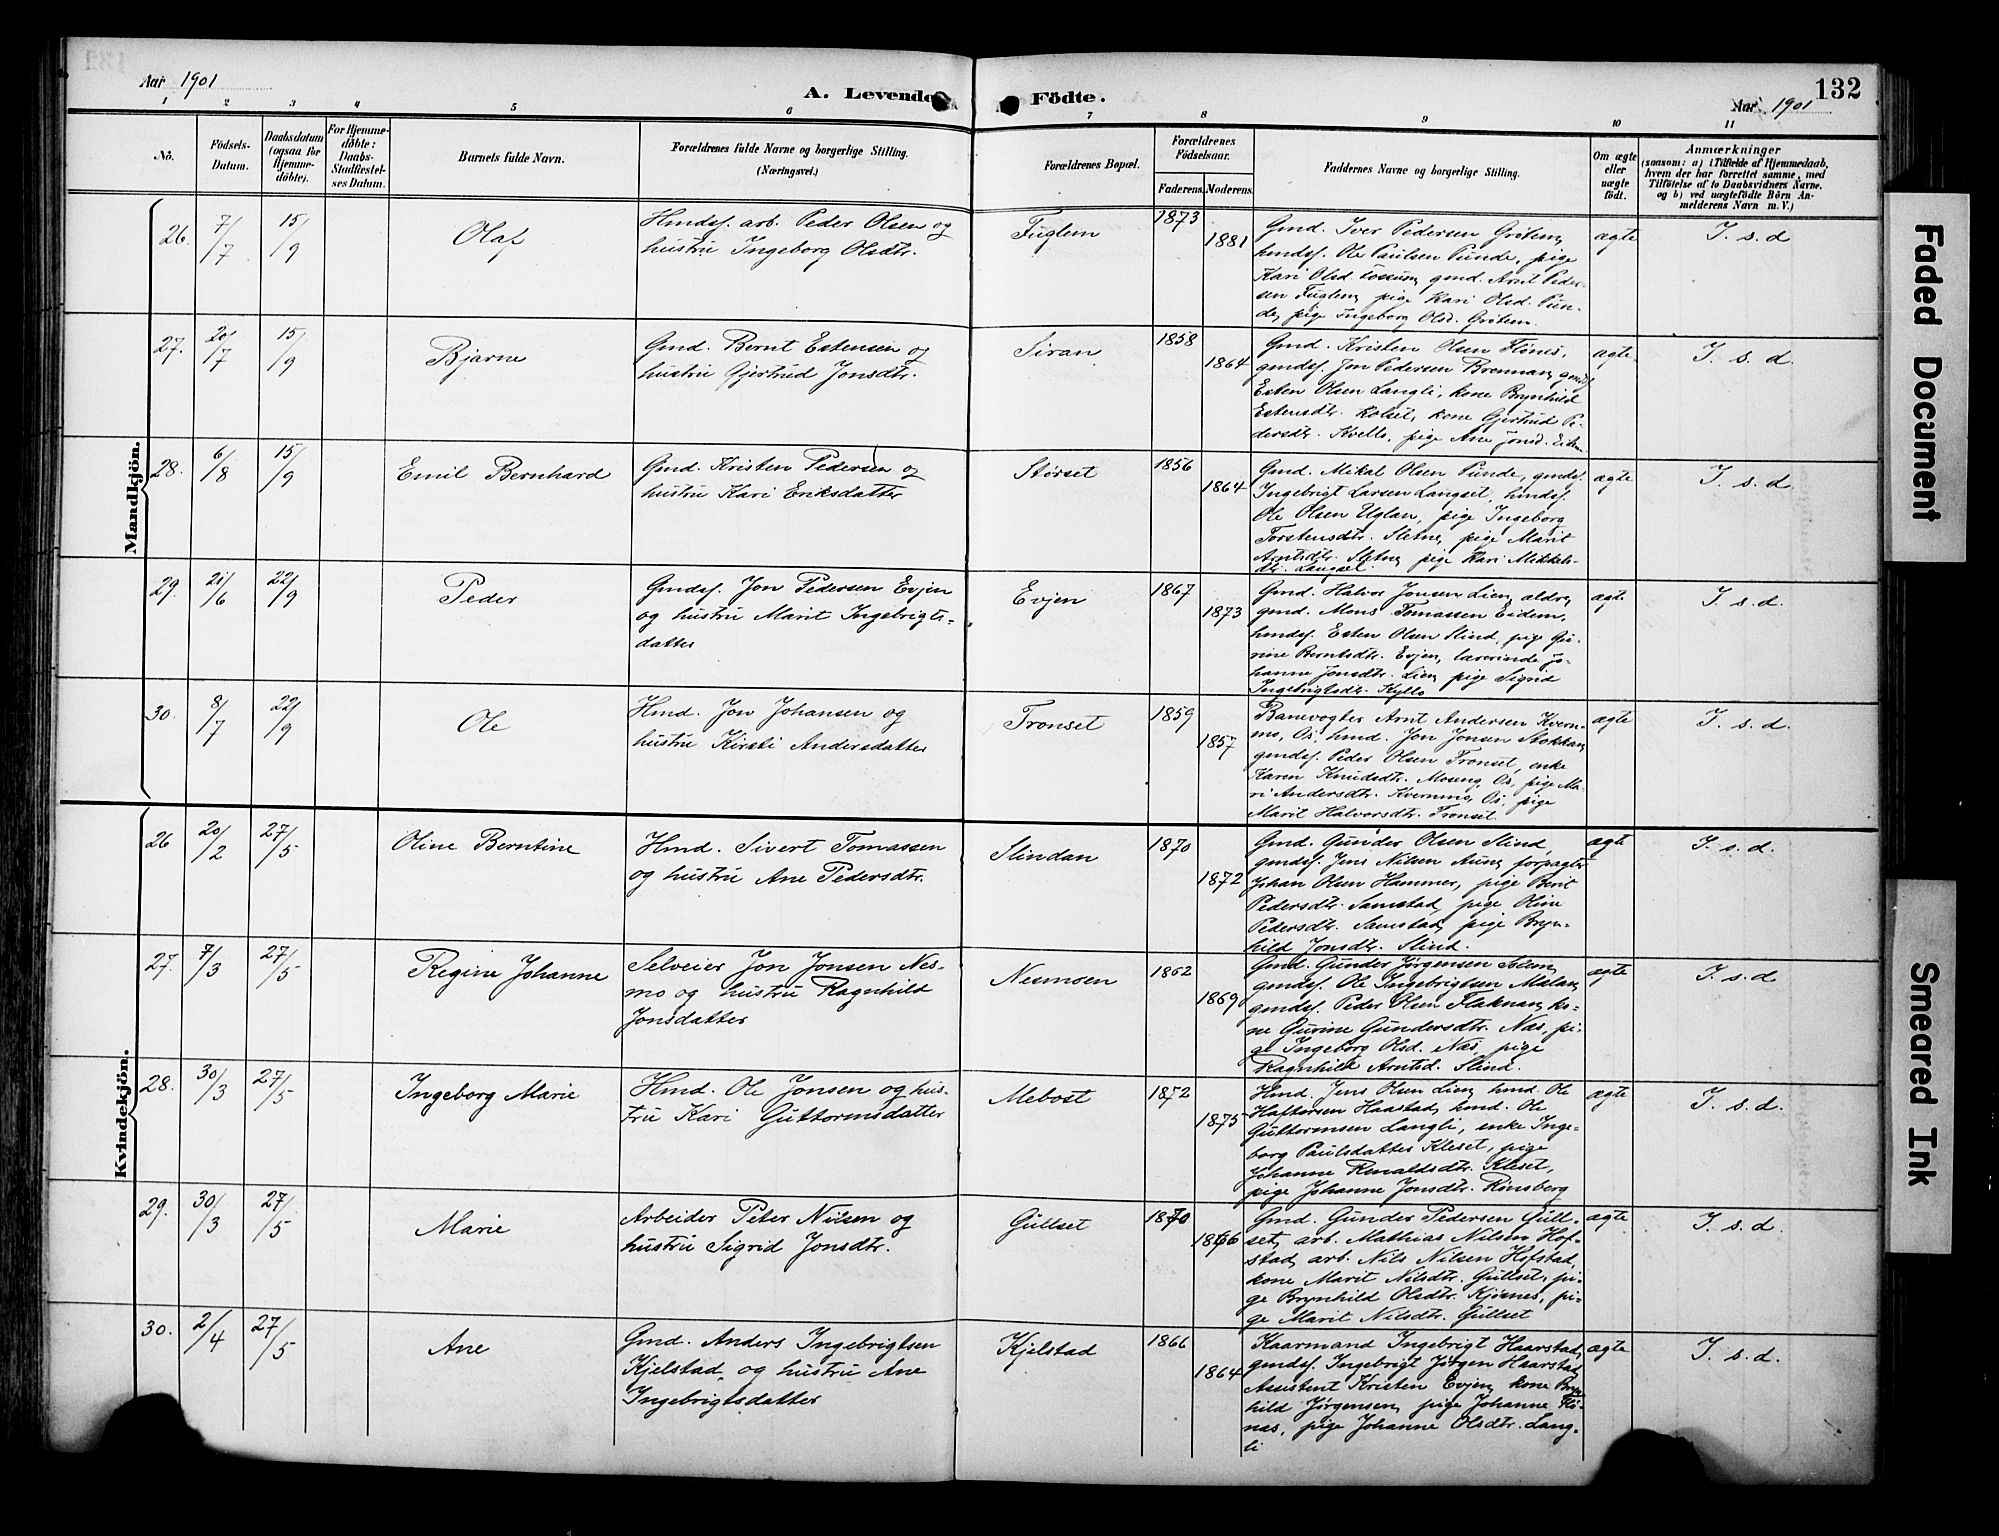 Aar 1901
A. Levende Födte.
132
Aar 1901
1 2 3 4 5 6 7 8 9 10 11
No.
Födsels-
Datum.
Daabsdatum
(ogsaa for
Hjemme-
döbte).
For Hjemme-
döbte:
Daabs-
Stadfæstel-
ses Datum.
Barnets fulde Navn.
Forældrenes fulde Navne og borgerlige Stilling.
(Næringsvei.)
Forældrenes Bopæl.
Forældrenes
Födselsaar.
Faderens. Moderens.
Faddernes Navne og borgerlige Stilling.
Om ægte
eller
uægte
födt.
Anmærkninger
(saasom: a) i Tilfælde af Hjemmedaab,
hvem der har forrettet samme, med
Tilföielse af to Daabsvidners Navne.
og b) ved uægtefödte Börn An-
melderens Navn m. V.)
Mandkjön.
26. 7/7 15/9 Olaf
Hmdsf. arb. Peder Olsen og
hustru Ingeborg Olsdtr.
Fuglem 1873 1881
Gmd. Iver Pedersen Grötem,
hmdsf. Ole Paulsen Punde, pige
Kari Olsd Fossum, gmd. Arnt Peder-
sen Fuglem, pige Kari Olsd. Pun-
de, pige Ingeborg Olsd. Grötem.
ægte I. s. d
27. 20/7 15/9 Bjarne
Gmd. Bernt Estensen og
hustru Gjertrud Jonsdtr.
Siran 1858 1864
Gmd. Kristen Olsen Flönes,
gmdsf. Jon Pedersen Brennan, gmdsf.
Esten Olsen Langli, kone Brynhild
Estensdtr. Kolset, kone Gjertrud Pe-
dersdtr. Kvello, pige Ane Jonsd. Eidem
ægte I. s. d.
28. 6/8 15/9 Emil Bernhard
Gmd. Kristen Pedersen og
hustru Kari Eriksdatter
Størset 1856 1864
Gmd. Mikal Olsen Punde, gmdsf.
Ingebrigt Larsen Langset, hmdsf.
Ole Olsen Uglan, pige Ingeborg
Torstensdtr. Sletne, pige Marit
Arntsdtr. Sletne, pige Kari Mikkels-
dtr. Langset.
ægte I. s. d.
29. 21/6 22/9 Peder
Gmdsf. Jon Pedersen Evjen
og hustru Marit Ingebrigts-
datter
Evjen 1867 1873
Gmd. Halvor Jonsen Lien, ældre,
gmd. Mons Tomassen Eidem,
hmdsf. Esten Olsen Slind, pige Gu-
rine Berntsdtr. Evjen, lærerinde Jo-
hanne Jonsdtr. Lien, pige Sigrid
Ingebrigtsdtr. Kyllo
ægte I. s. d.
30. 8/7 22/9 Ole
Hmd. Jon Johansen og
hustru Kirsti Andersdatter
Tronset 1859 1857
Banevogter Arnt Andersen Kvern-
mo, Os, hmd. Jon Jonsen Stokkan,
gmdsf. Peder Olsen Tronset, enke
Karen Knudsdtr. Moseng, Os, pige Ma-
ri Andersdtr. Kvernmo, Os, pige
Marit Halvorsdtr. Tronset
ægte I. s. d.
Kvindekjön.
26 20/2 27/5 Oline Berntine
Hmd. Sivert Tomassen
og hustru Ane Pedersdtr.
Slindan 1870 1872
Gmd. Gunder Olsen Slind,
gmdsf. Jens Nilsen Aune, forpagter
Johan Olsen Hammer, pige Berit
Pedersdtr. Samstad, pige Oline
Pedersdtr. Samstad, pige Bryn-
hild Jonsdtr. Slind.
ægte I. s. d.
27. 7/3 27/5 Regine Johanne
Selveier Jon Jonsen Nes-
mo og hustru Ragnhild
Jonsdatter
Nesmoen 1862 1869
Gmd. Gunder Jørgensen Solem,
gmdsf. Ole Ingebrigtsen Målan,
gmdsf. Peder Olsen Flaknan, ko-
ne Gurine Gundersdtr. Næs, pi-
ge Ingeborg Olsd. Næs, pige
Ragnhild Arntsd. Slind.
ægte I. s. d
28. 30/3 27/5 Ingeborg Marie
Hmd. Ole Jonsen og hus-
tru Kari Guttormsdatter
Mebost 1872 1875
Hmd. Jens Olsen Lien, hmd. Ole
Haftorsen Haarstad, hmd. Ole
Guttormsen Langli, enke Inge-
borg Paulsdatter Kleset, pige
Johanne Renaldsdtr. Kleset,
pige Johanne Jonsdtr. Rönsberg
ægte I. s. d.
29. 30/3 27/5 Marie
Arbeider Peter Nilsen og
hustru Sigrid Jonsdtr.
Gullset 1870 1866
Gmd. Gunder Pedersen Gull-
set, arb. Mathias Nilsen Hof-
stad, arb. Nils Nilsen Hofstad,
kone Marit Nilsdtr. Gullset, pi-
ge Brynhild Olsdtr. Kjøsnes, pi-
ge Marit Nilsdtr. Gullset
ægte I. s. d.
30. 2/4 27/5 Ane
Gmd. Anders Ingebrigtsen
Kjelstad, og hustru Ane
Ingebrigtsdatter
Kjelstad 1866 1864
Kaarmand Ingebrigt Haarstad,
gmdsf. Ingebrigt Jørgen Haarstad,
Assistent Kristen Evjen, kone Bryn-
hild Jørgensen, pige Johanne Flö-
nas, pige Johanne Olsdtr. Lang-
li
ægte I. s. d.
Faded Document
Smeared Ink